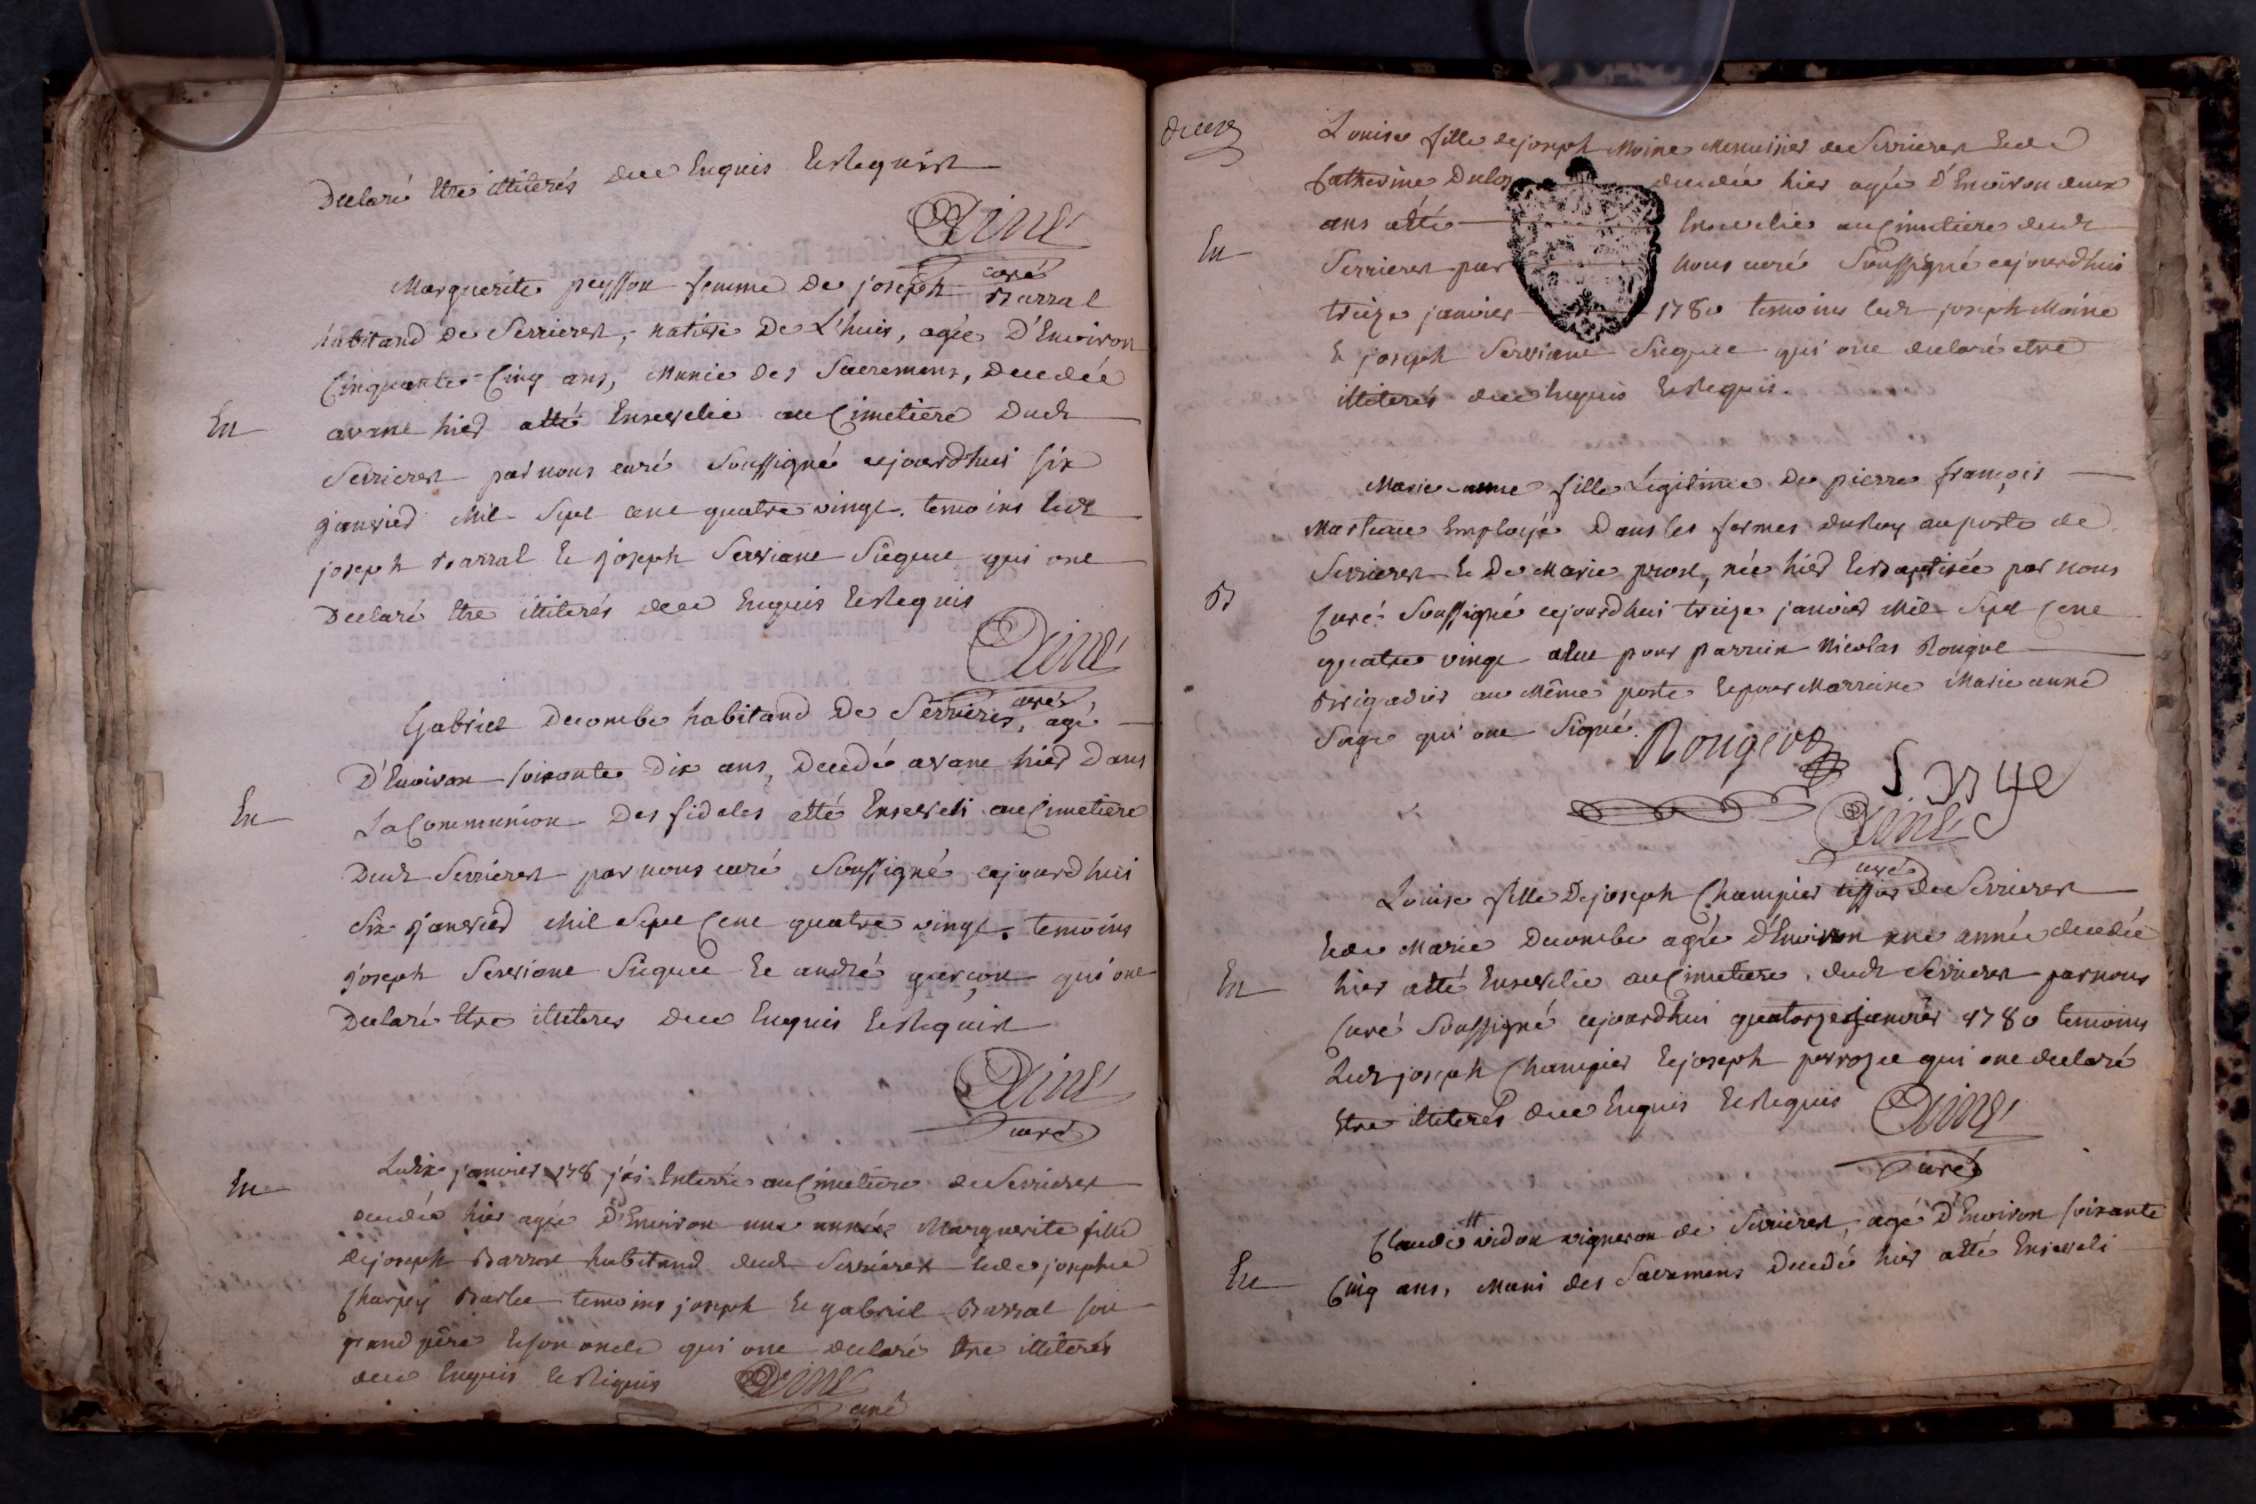 Declaré Etre illiterés dece Enquis Et Requis
Ainé
curé
Marguerite peysson femme De joseph Barral
habitand De Serrieres, native De L'huis, agée D'Environ
Cinquante Cinq ans, Munie des Sacremens, Decedée
En
avant hier atté Ensevelie au Cimetiere Dudt
Serrieres par nous curé Soussigné cejourdhui six
janvier Mil Sept cent quatre vingt. temoins ledt
joseph Barral Et joseph Serviant qui ont
Declaré Etre illiterés dece Enquis Et Requis
Ainé
curé
Gabriel Decombe habitand De Serrieres, agé
D'Environ soixante Dix ans, Decedé avant hier Dans
En
La Communion Des fideles atté Enseveli au Cimetiere
Dudt Serrieres par nous curé Soussigné cejourdhui
Six janvier Mil Sept Cent quatre vingt. temoins
joseph Serviant Et andré garçon qui ont
Declaré Etre illiteres dece Enquis Et Requis
Ainé
curé
En
Le dix janvier 178 j'ai Enterré au Cimetiere de Serrieres
decedée hier agée D'Environ une année Marguerite fille
de joseph Barral habitand dudt Serrieres Et de josephte
temoins joseph Et gabriel Barral son
grand père Et son oncle qui ont declaré Etre illiterés
dece Enquis Et Requis
Ainé
curé
deux
Louise fille de joseph Moine Menuisier de Serrieres Et de
Catherine decedée hier agée d'Environ deux
ans atté Ensevelie au Cimetiere dudt
En
Serrieres par nous curé Soussigné cejourdhui
treize janvier 1780 temoins ledt joseph Moine
Et joseph Serviant qui ont declaré etre
illiterés dece Enquis Et Requis.
Marie anne fille Légitime De pierre françois
Employé Dans les fermes du Roy au poste de
Serrieres Et De Marie née hier Et Baptisée par nous
B
Curé Soussigné cejourdhui treize janvier Mil Sept Cent
quatre vingt a Eut pour Parrein Nicolas Rougive
Brigadier au Même poste Et pour Marreine Marie anne
Sage qui ont Signé.
Rougive
Sage
Ainé
curé
Louise fille De joseph Champier tissier de Serrieres
Et de Marie Decombe agée D'Environ une année decedée
En
hier atté Ensevelie au Cimetiere dudt Serrieres par nous
Curé Soussigné cejourdhui quatorze janvier 1780 temoins
Ledt joseph Champier Et joseph qui ont declaré
Etre illiterés dece Enquis Et Requis
Ainé
curé
Claude vidon vigneron de Serrieres, agé D'Environ soixante
En
Cinq ans, Muni des Sacremens Decedé hier atté Enseveli